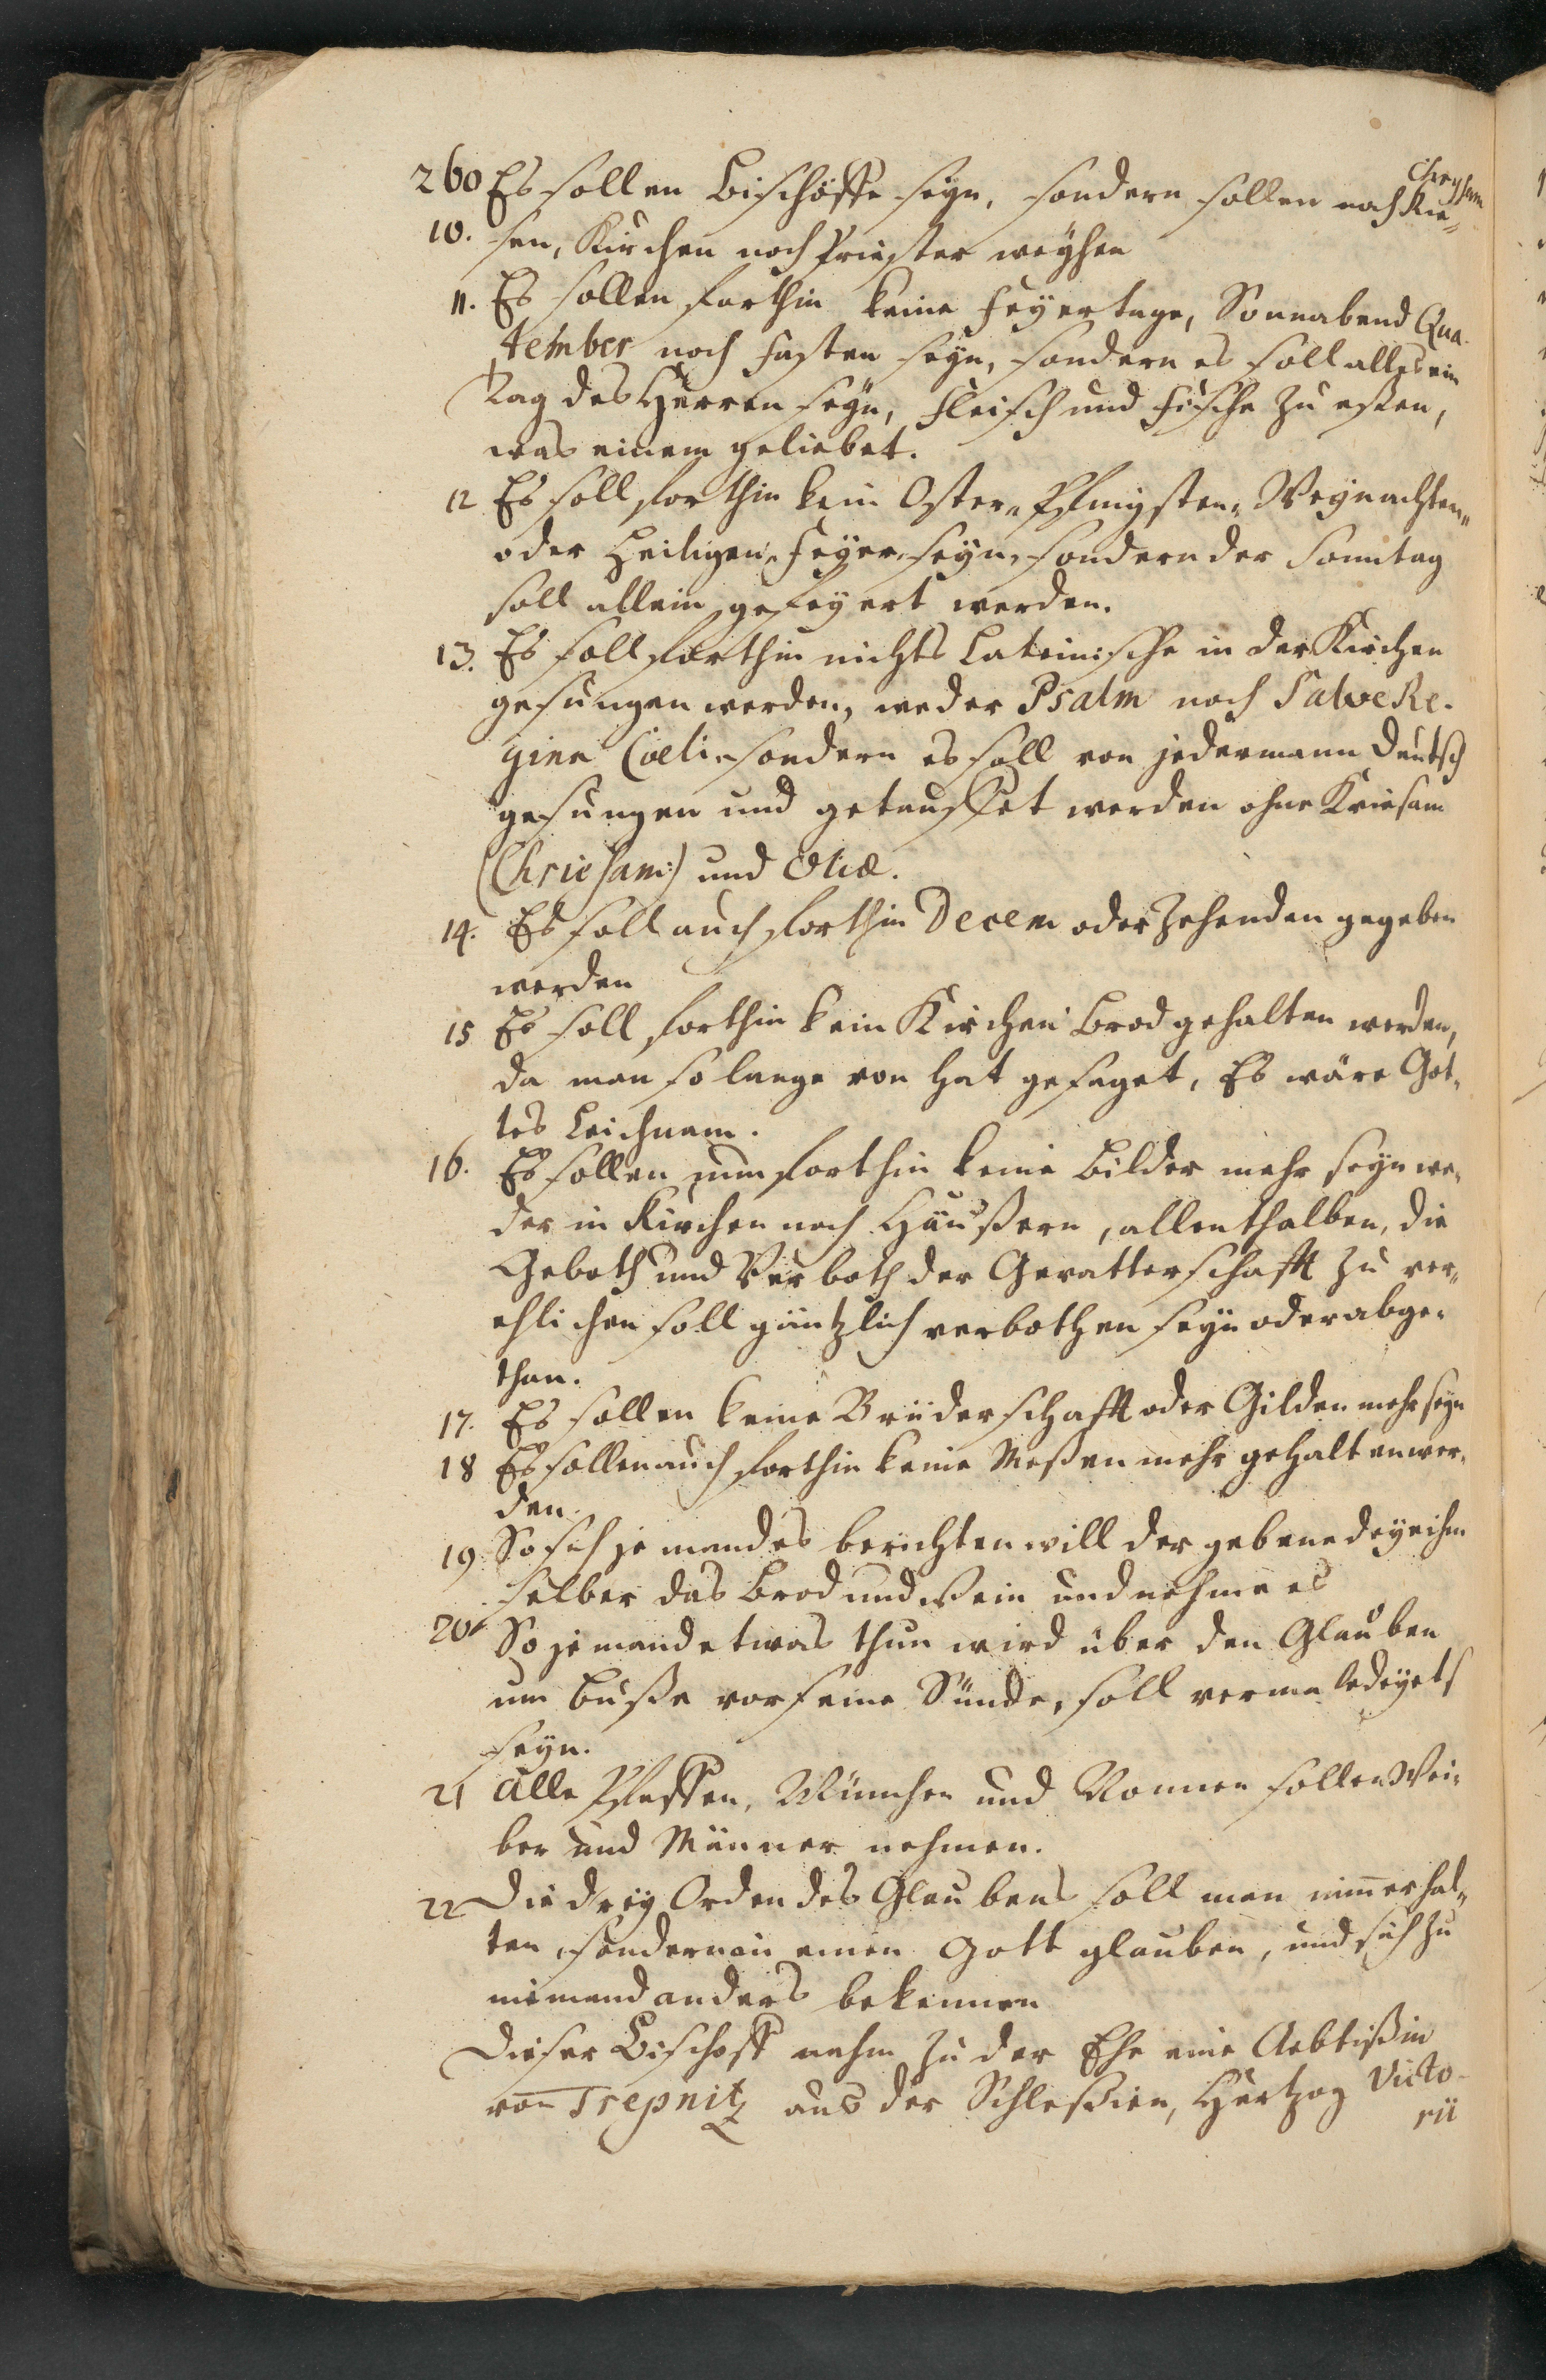 260 Es sollen Bischöffe seyn, sondern sollen noch Krie-
Chrysam
10. sen, Kirchen noch Priester weyhen
11. Es sollen forthin keine Feyertage, Sonnabend Qua-
tember noch Fasten seyn, sondern es soll alles ein
Tag des Herren seyn, Fleisch und Fische zu eßen,
was einem geliebet.
12 Es soll forthin kein Oster- Pfingsten- Weynachten-
oder Heiligen-Feyer seyn, sondern der Sonntag
soll allein gefeyert werden.
13. Es soll forthin nichts Lateinische in der Kirchen
gesungen werden, weder Psalm noch Salve Re-
gina Coeli, sondern es soll von jedermann deutsch
gesungen und getauffet werden ohne Kriesam
(Chriesam) und Oliæ.
14. Es soll auch forthin Decem oder Zehenden gegeben
werden
15 Es soll forthin kein Kirchen Brod gehalten werden,
da man so lange von hat gesaget, Es wäre Got-
tes Leichnam.
16. Es sollen nun forthin keine Bilder mehr seyn we-
der in Kirchen noch Häußern, allenthalben, die
Geboth und Verboth der Gevatterschafft zu ver-
ehlichen soll gäntzlich verbothen seyn oder abge-
than.
17. Es sollen keine Brüderschafft oder Gilden mehr seyn
18 Es sollen auch forthin keine Meßen mehr gehalten wer-
den.
19 So sich jemandes berichten will der gebenedeye ihm
selber das Brod und Wein und nehme es
20 So jemand etwas thun wird über den Glauben
um Buße vor seine Sünde, soll vermaledeyet
seyn.
21 Alle Pfaffen, Münche und Nonnen sollen Wei-
ber und Männer nehmen.
22 Die drey Orden des Glaubens soll man nimmer hal-
ten, sondern in einen Gott glauben, und sich zu
niemand anders bekennen
Dieser Bischoff nahm zu der Ehe eine Aebtißin
von Trepnitz aus der Schlesien, Hertzog Victo-
rii